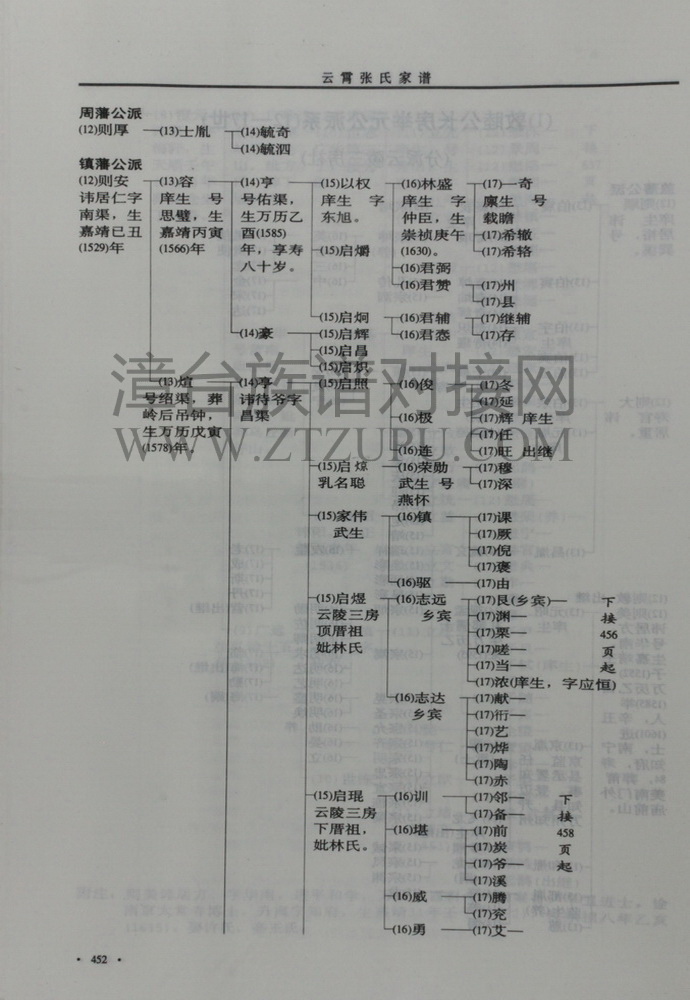 云霄张氏家谱
周藩公派
(12)则厚 (13)士胤 (14)毓奇
(14)毓泗
镇藩公派
(12)则安 (13)容 (14)亨 (15)以权 (16)林盛 (17)一奇
讳居仁字 庠生 号 号佑渠, 庠生 字 庠生 字 廪生 号
南渠, 生 思璧, 生 生万历乙 东旭。 仲臣, 生 载瞻
嘉靖已丑 嘉靖丙寅 酉(1585) 崇祯庚午 (17)希辙
(1529)年 (1566)年 年, 享寿 (15)启爝 (1630)。 (17)希辂
八十岁。 (16)君弼
(16)君赞 (17)州
(17)县
(15)启炯 (16)君辅 (17)继辅
(14)豪 (15)启辉 (16)君悫 (17)存
(15)启昌
(15)启炽
(13)煊 (14)亭 (15)启照 (16)俊 (17)冬
号绍渠, 葬 讳待爷字 (17)延
岭后吊钟, 昌渠 (16)极 (17)辉 庠生
生万历戊寅 (17)任
(1578)年。 (16)连 (17)旺 出继
(15)启㷍 (16)荣勋 (17)穆
乳名聪 武生 号 (17)深
燕怀
(15)家伟 (16)镇 (17)课
武生 (17)厥
(17)倪
(17)褒
(16)驱 (17)由
(15)启煜 (16)志远 (17)艮(乡宾) 下
云陵三房 乡宾 (17)渊 接
顶厝祖 (17)栗 456
妣林氏 (17)嗟 页
(17)当 起
(17)浓(庠生, 字应恒)
(16)志达 (17)献
乡宾 (17)衍
(17)艺
(17)烨
(17)陶
(17)赤
(15)启琨 (16)训 (17)邻 下
云陵三房 (17)备 接
下厝祖, (16)堪 (17)前 458
妣林氏。 (17)炭 页
(17)爷 起
(17)溪
(16)威 (17)腾
(17)兖
(16)勇 (17)艾
· 452 ·
漳台族谱对接网
WWW.ZTZUPU.COM